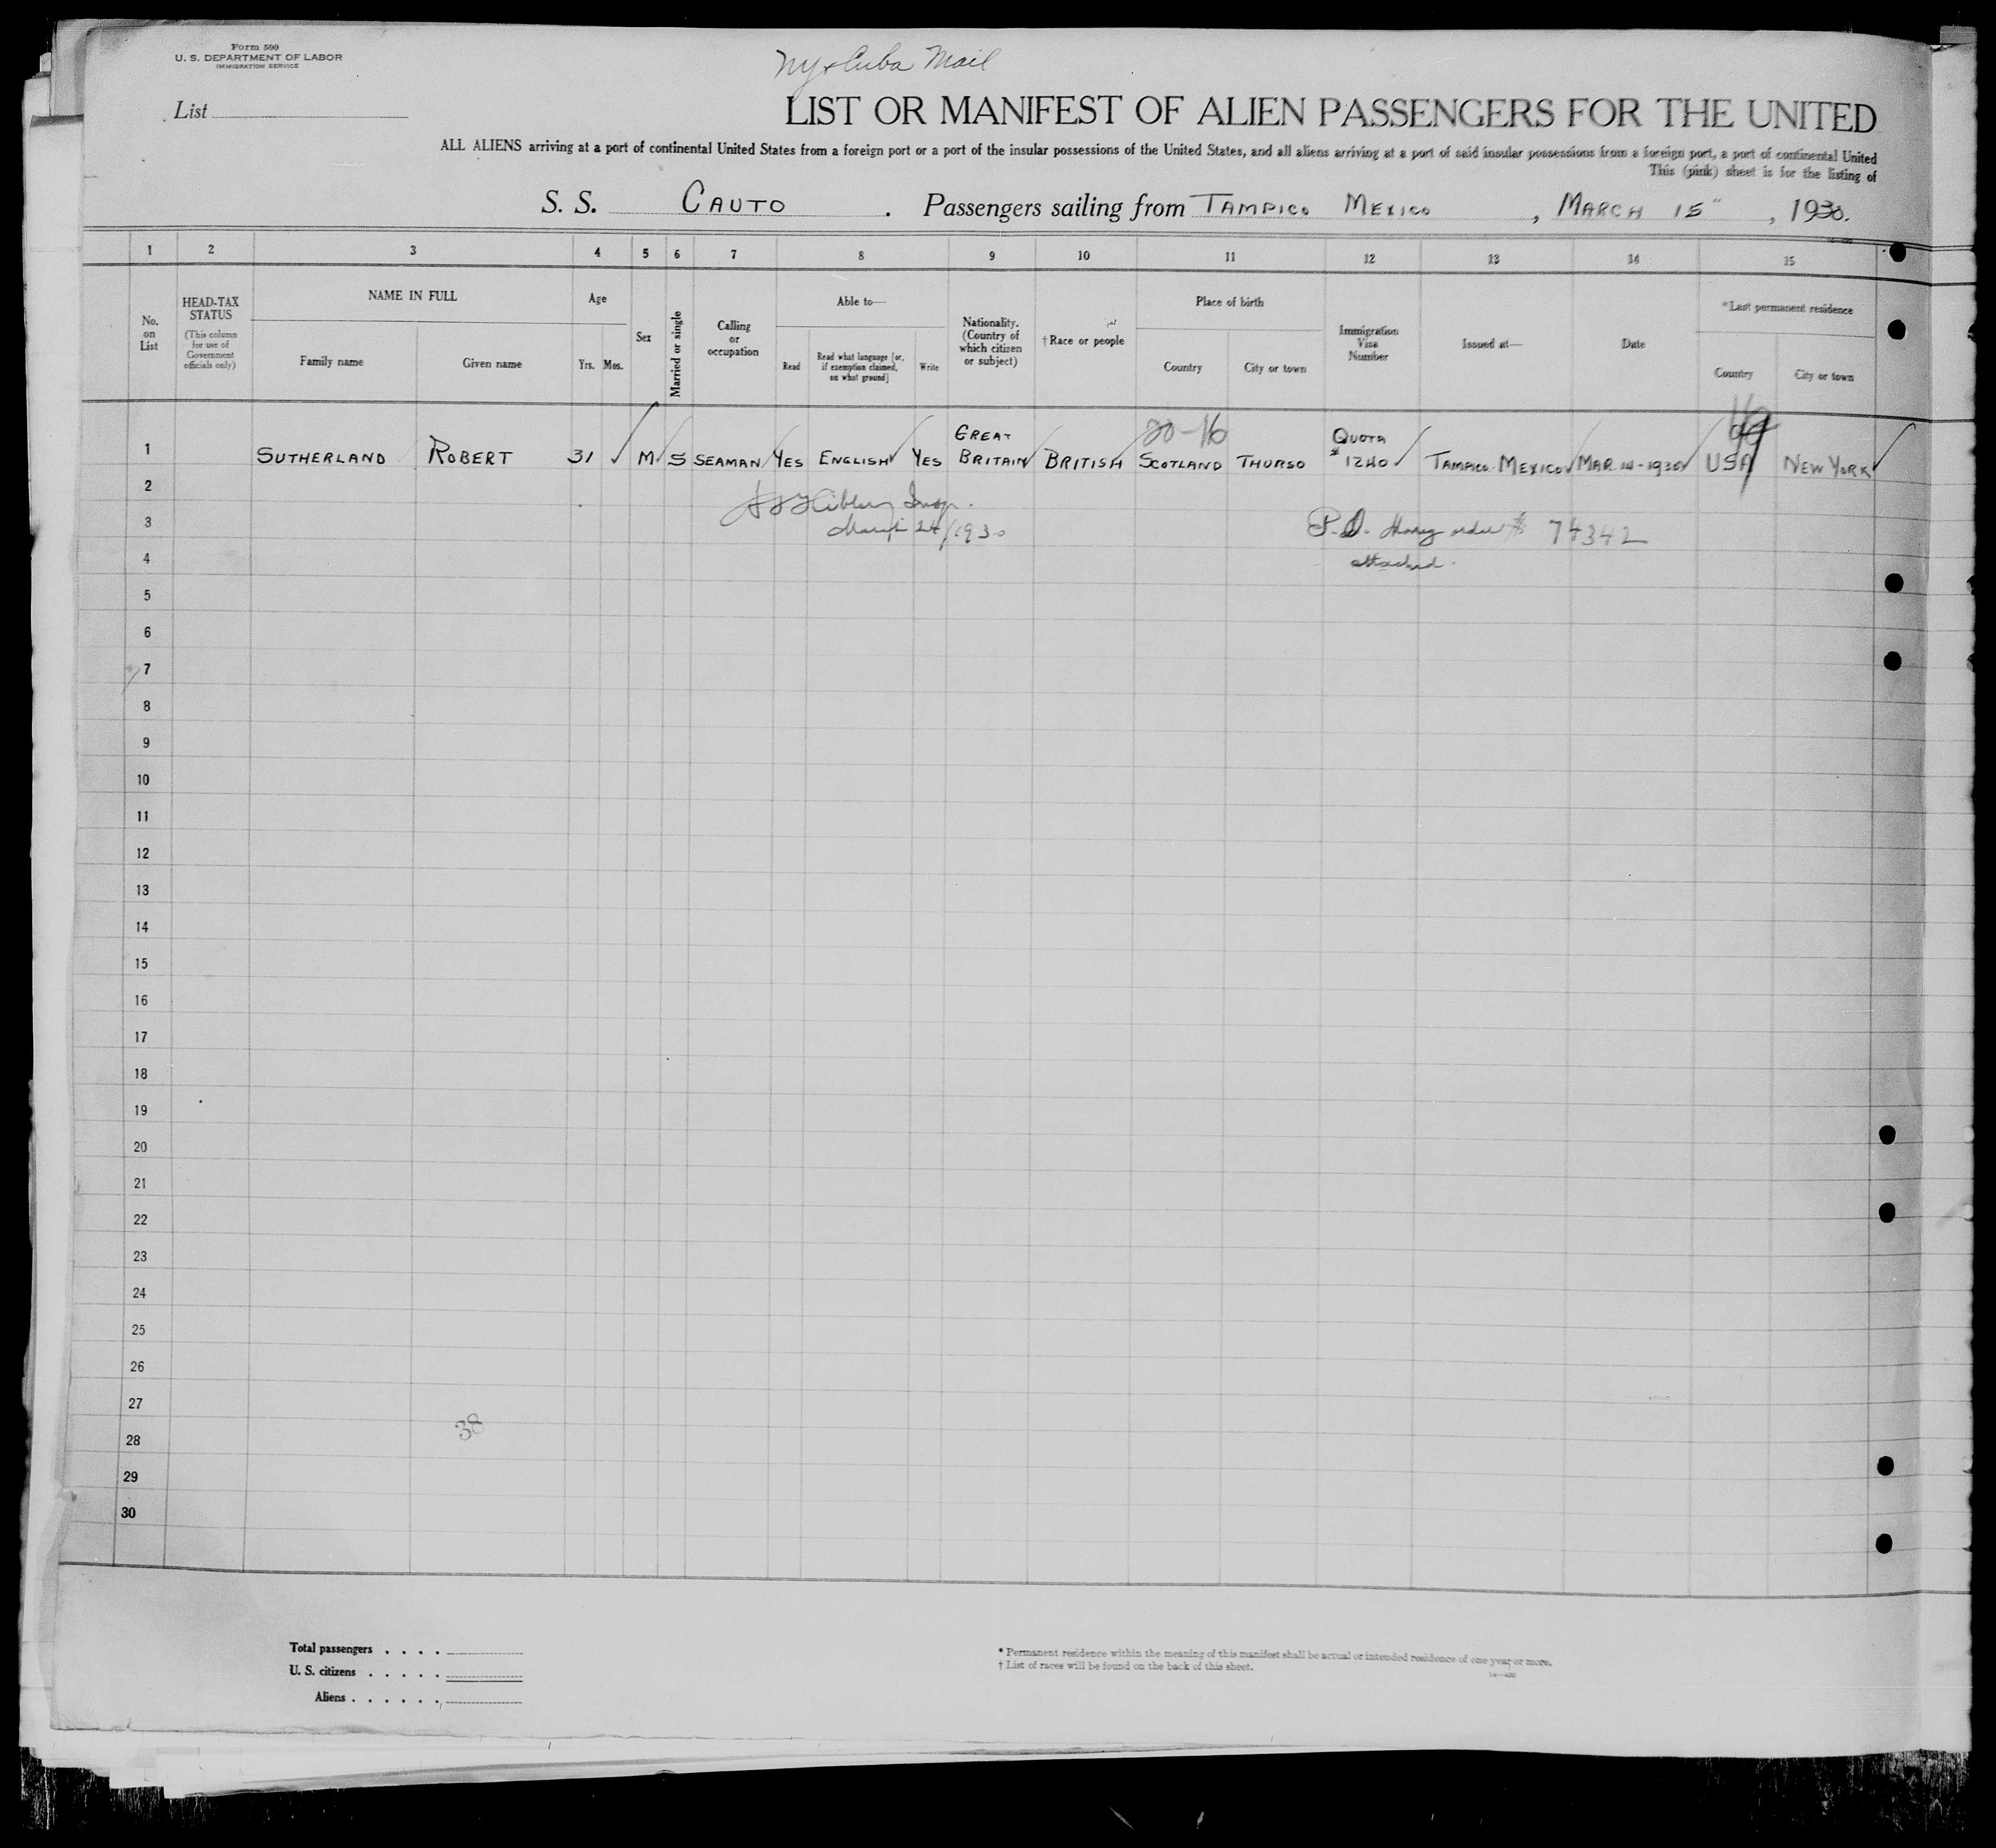 Form 500
U. S. DEPARTMENT OF LABOR
IMMIGRATION SERVICE
NY & Cuba Mail
List
LIST OR MANIFEST OF ALIEN PASSENGERS FOR THE UNITED
ALL ALIENS arriving at a port of continental United States from a foreign port or a port of the insular possessions of the United States, and all aliens arriving at a port of said insular possessions from a foreign port, a port of continental United
This (pink) sheet is for the listing of
S. S. CAUTO . Passengers sailing from TAMPICO MEXICO , MARCH 15" , 1930.
1 2 3 4 5 6 7 8 9 10 11 12 13 14 15
No. on List
HEAD-TAX STATUS
(This column for use of Government officials only)
NAME IN FULL
Family name Given name
Age
Yrs. Mos.
Sex
Married or single
Calling or occupation
Able to—
Read
Read what language [or, if exemption claimed, on what ground]
Write
Nationality. (Country of which citizen or subject)
†Race or people
Place of birth
Country City or town
Immigration Visa Number
Issued at—
Date
*Last permanent residence
Country City or town
20-16
1 SUTHERLAND ROBERT 31 M S SEAMAN YES ENGLISH YES GREAT BRITAIN BRITISH SCOTLAND THURSO QUOTA # 1240 TAMPICO MEXICO MAR. 14-1930 USA NEW YORK
2 Insp.
3 March 24/1930 P.D. order # 74342
4 attached.
5
6
7
8
9
10
11
12
13
14
15
16
17
18
19
20
21
22
23
24
25
26
27
38
28
29
30
Total passengers . . . .
U. S. citizens . . . . .
Aliens . . . . . .
* Permanent residence within the meaning of this manifest shall be actual or intended residence of one year or more.
† List of races will be found on the back of this sheet.